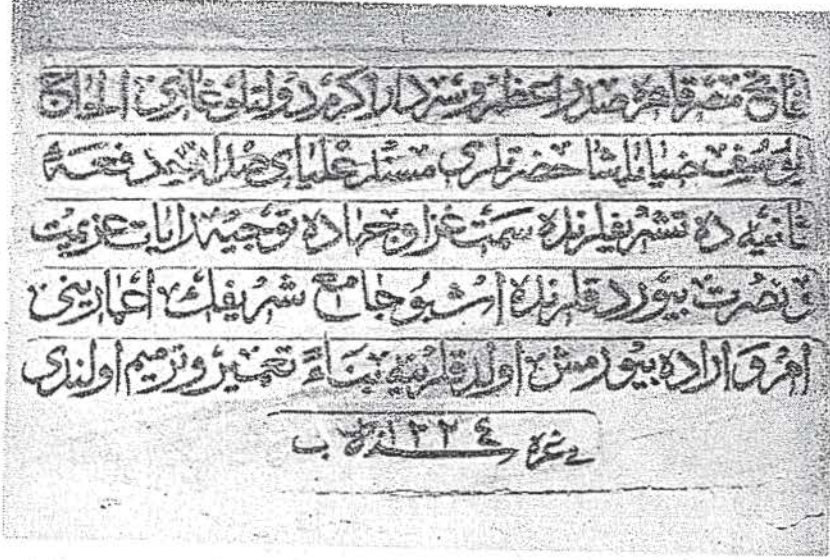 فاتح مصر قاهره صدر اعظم وسردار اكرم دولتلو غازى الحاج
يوسف ضيا پاشا حضرتلرى مسند علياى صدارته دفعهٔ
ثانيه ده تشريفلرنده سمت غزا وجهاده توجيه رايات عزيمت
و نصرت بيوردقلرنده اشبو جامع شريفك اعمارينى
امر و اراده بيورمش اولدقلرينه بناءً تعمير وترميم اولندى
فى غره ب سنه ١٢٢٤